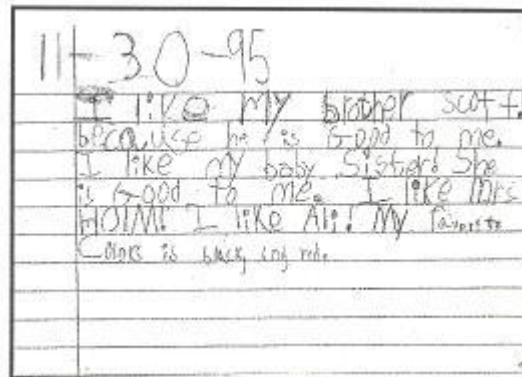 11-30-95
I like my brother scott.
because he is Good to me.
I like my baby Sister! She
is Good to me. I like Mrs
HOlM! I like Ali! My favorite
Colors is black and red.